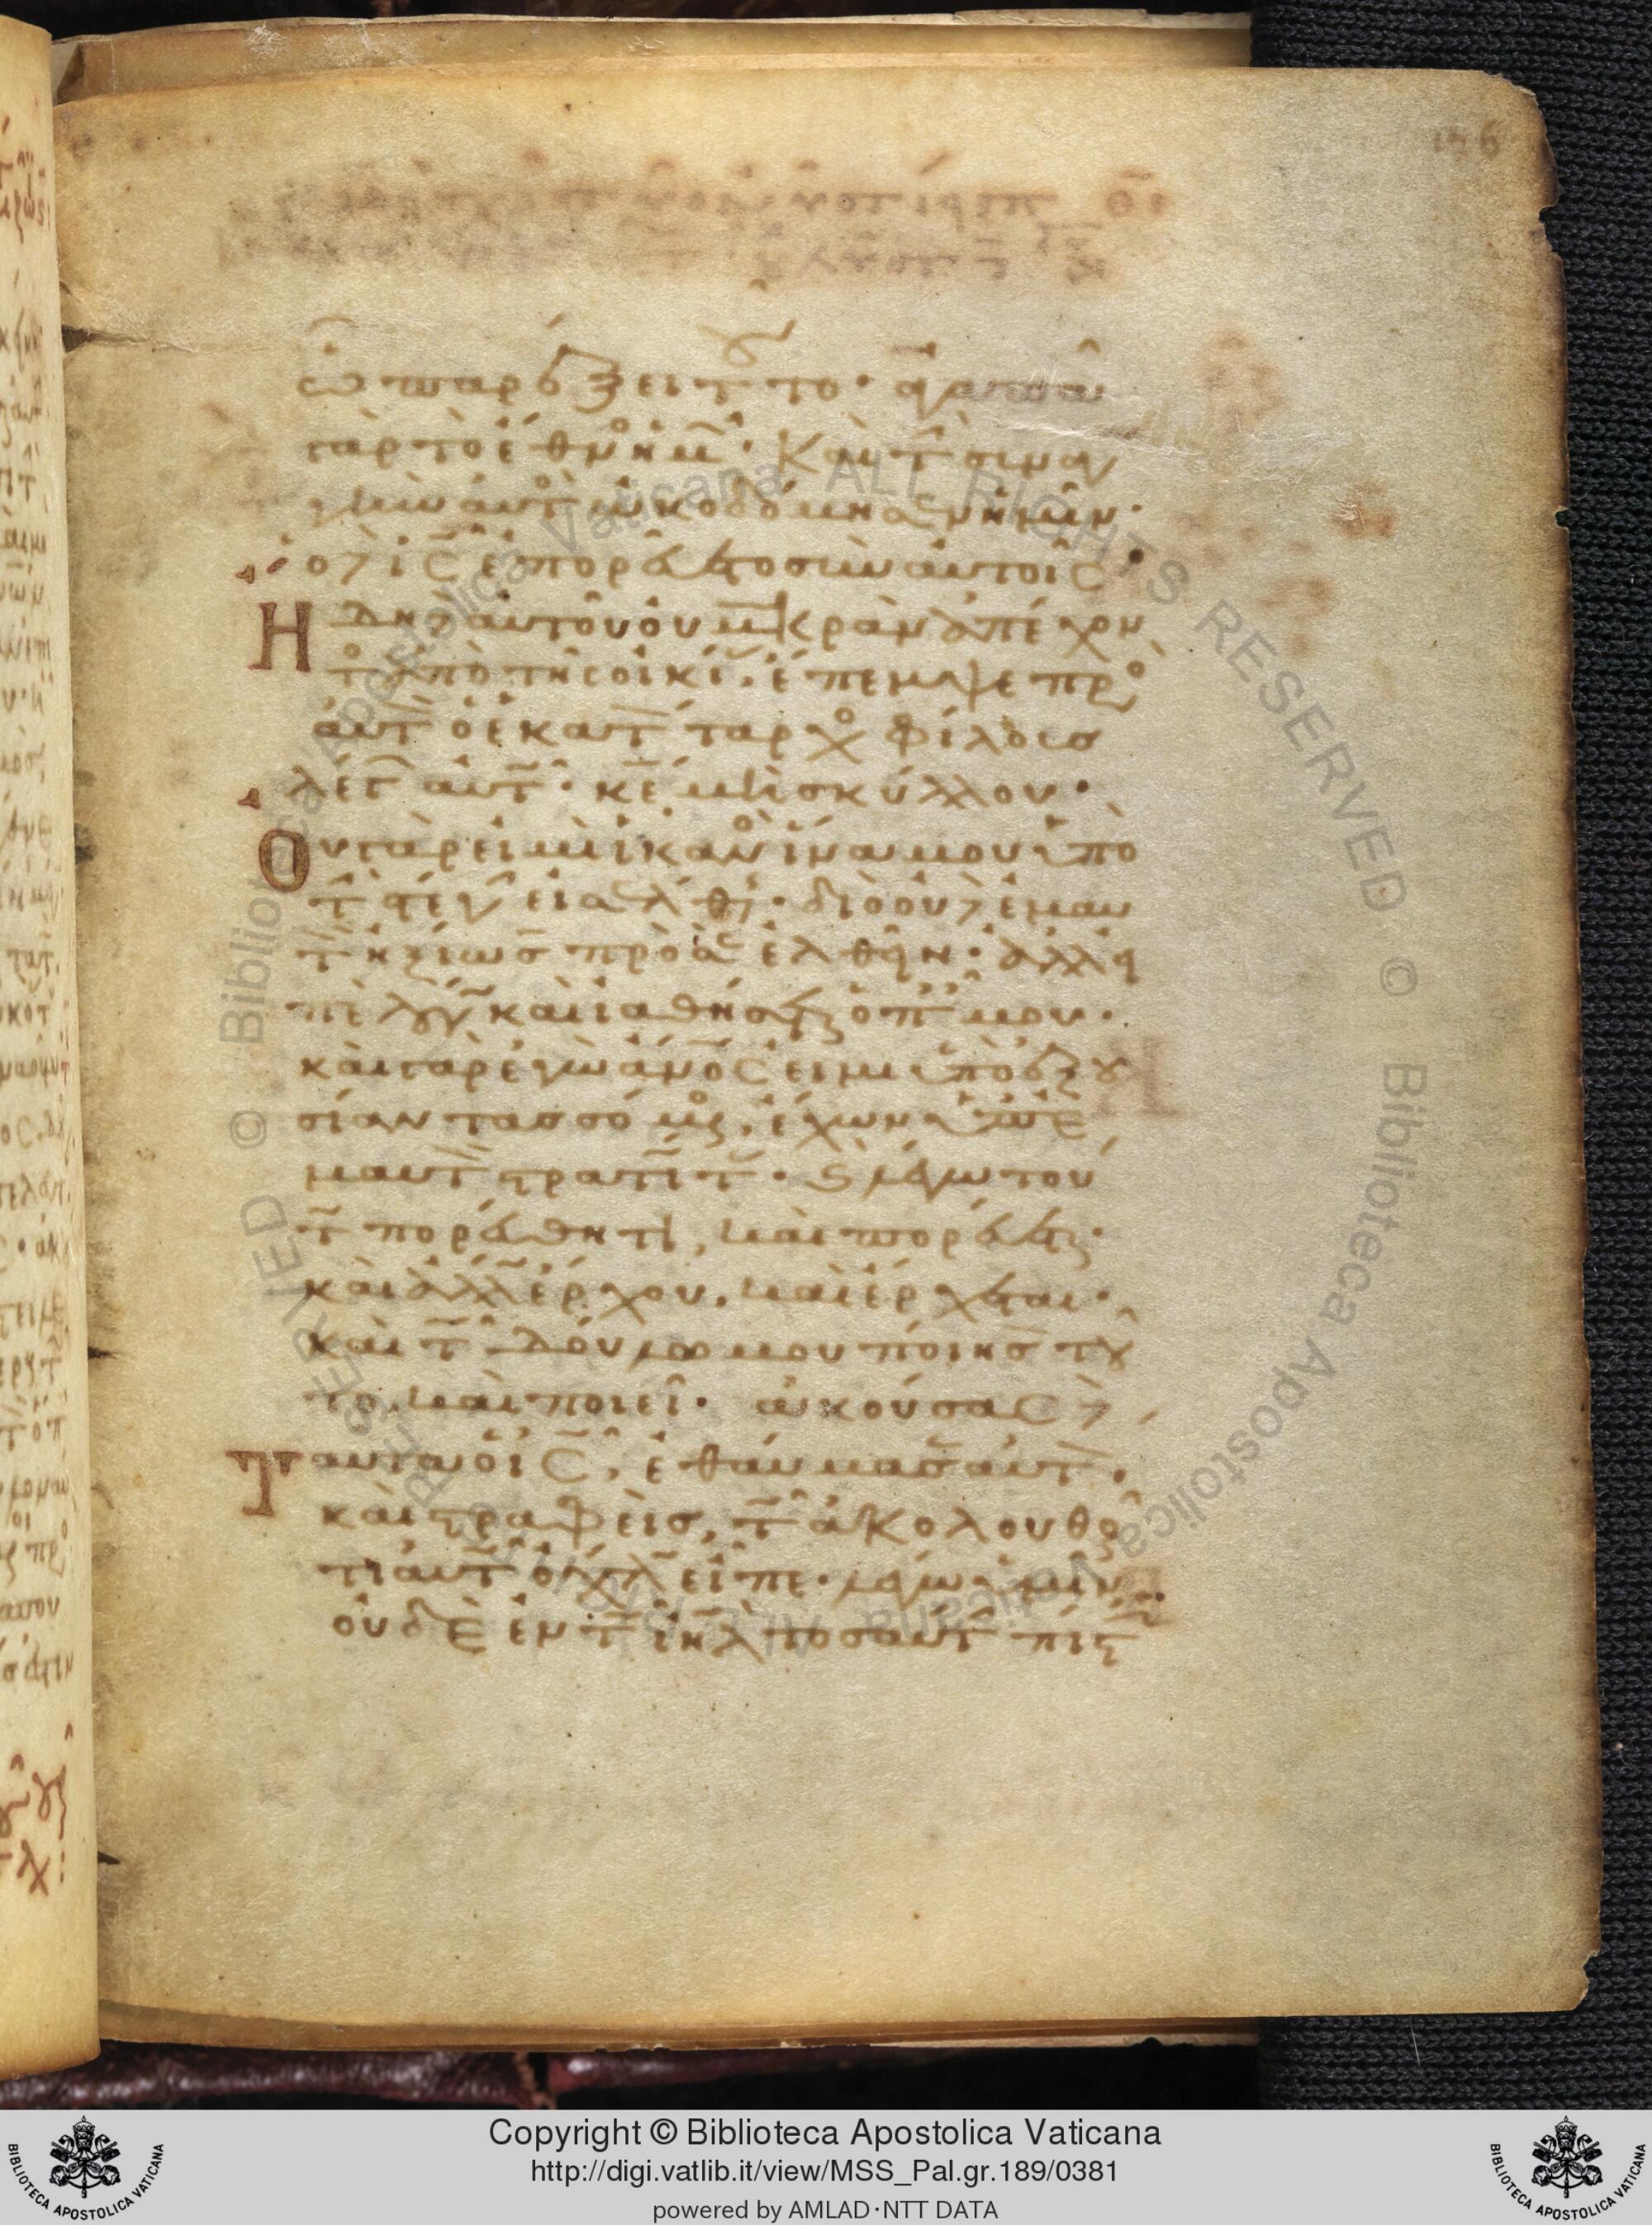 ὡ παρέξει τοῦτο· ἀγαπᾷ
γὰρ τὸ ἔθνος ἡμῶν· καὶ τὴν συνα
γωγὴν αὐτὸς ὠκοδόμησεν ἡμῖν·
ὁ δὲ ις ἐπορεύετο σὺν αὐτοῖς·
Ηδη δὲ αὐτοῦ οὐ μακρὰν ἀπέχον
τος ἀπὸ τῆς οἰκίας, ἔπεμψε πρὸς
αὐτὸν ὁ ἑκατόνταρχος φίλους
λέγων αὐτῷ· κε μὴ σκύλλου·
Ου γάρ εἰμι ἱκανὸς ἵνα μου ὑπὸ
τὴν στέγην εἰσέλθῃς· διὸ οὐδὲ ἐμαυ
τὸν ἠξίωσα πρὸς σὲ ἐλθεῖν· ἀλλὰ
εἰπὲ λόγῳ καὶ ἰαθήσεται ὁ παῖς μου·
καὶ γὰρ ἐγὼ ανος εἰμι ὑπὸ ἐξου
σίαν τασσόμενος, ἔχων ὑπ' ἐ
μαυτὸν στρατιώτας· καὶ λέγω τού
τῳ πορεύθητι, καὶ πορεύεται·
καὶ ἄλλῳ ἔρχου, καὶ ἔρχεται·
καὶ τῷ δούλῳ μου ποίησον τοῦ
το, καὶ ποιεῖ· ἀκούσας δὲ
Ταυτα ὁ ις, ἐθαύμασεν αὐτόν,
καὶ στραφεὶς, τῷ ἀκολουθοῦν
τι αὐτῷ ὄχλῳ εἶπε· λέγω ὑμῖν
οὐδὲ ἐν τῷ ιηλ τοσαύτην πίστιν
Copyright © Biblioteca Apostolica Vaticana
http://digi.vatlib.it/view/MSS_Pal.gr.189/0381
powered by AMLAD·NTT DATA
BIBLIOTECA APOSTOLICA VATICANA
BIBLIOTECA APOSTOLICA VATICANA
© Biblioteca Apostolica Vaticana ALL RIGHTS RESERVED © Biblioteca Apostolica Vaticana ALL RIGHTS RESERVED